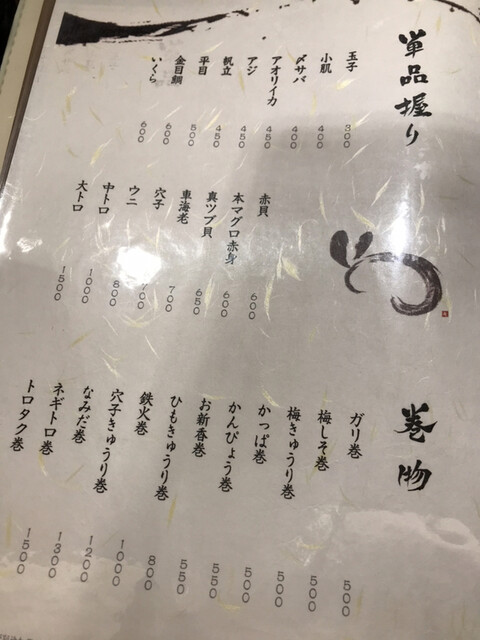 単品握り
玉子 300
小肌 400
〆サバ 400
アオリイカ 450
アジ 450
帆立 450
平目 500
金目鯛 600
いくら 600
赤貝 600
本マグロ赤身 600
真ツブ貝 650
車海老 700
穴子 700
ウニ 800
中トロ 1000
大トロ 1500
巻物
ガリ巻
梅しそ巻
梅きゅうり巻
かっぱ巻
かんぴょう巻
お新香巻
ひもきゅうり巻
鉄火巻
穴子きゅうり巻
なみだ巻
ネギトロ巻
トロタク巻
500
500
500
500
550
550
800
1000
1200
1300
1500